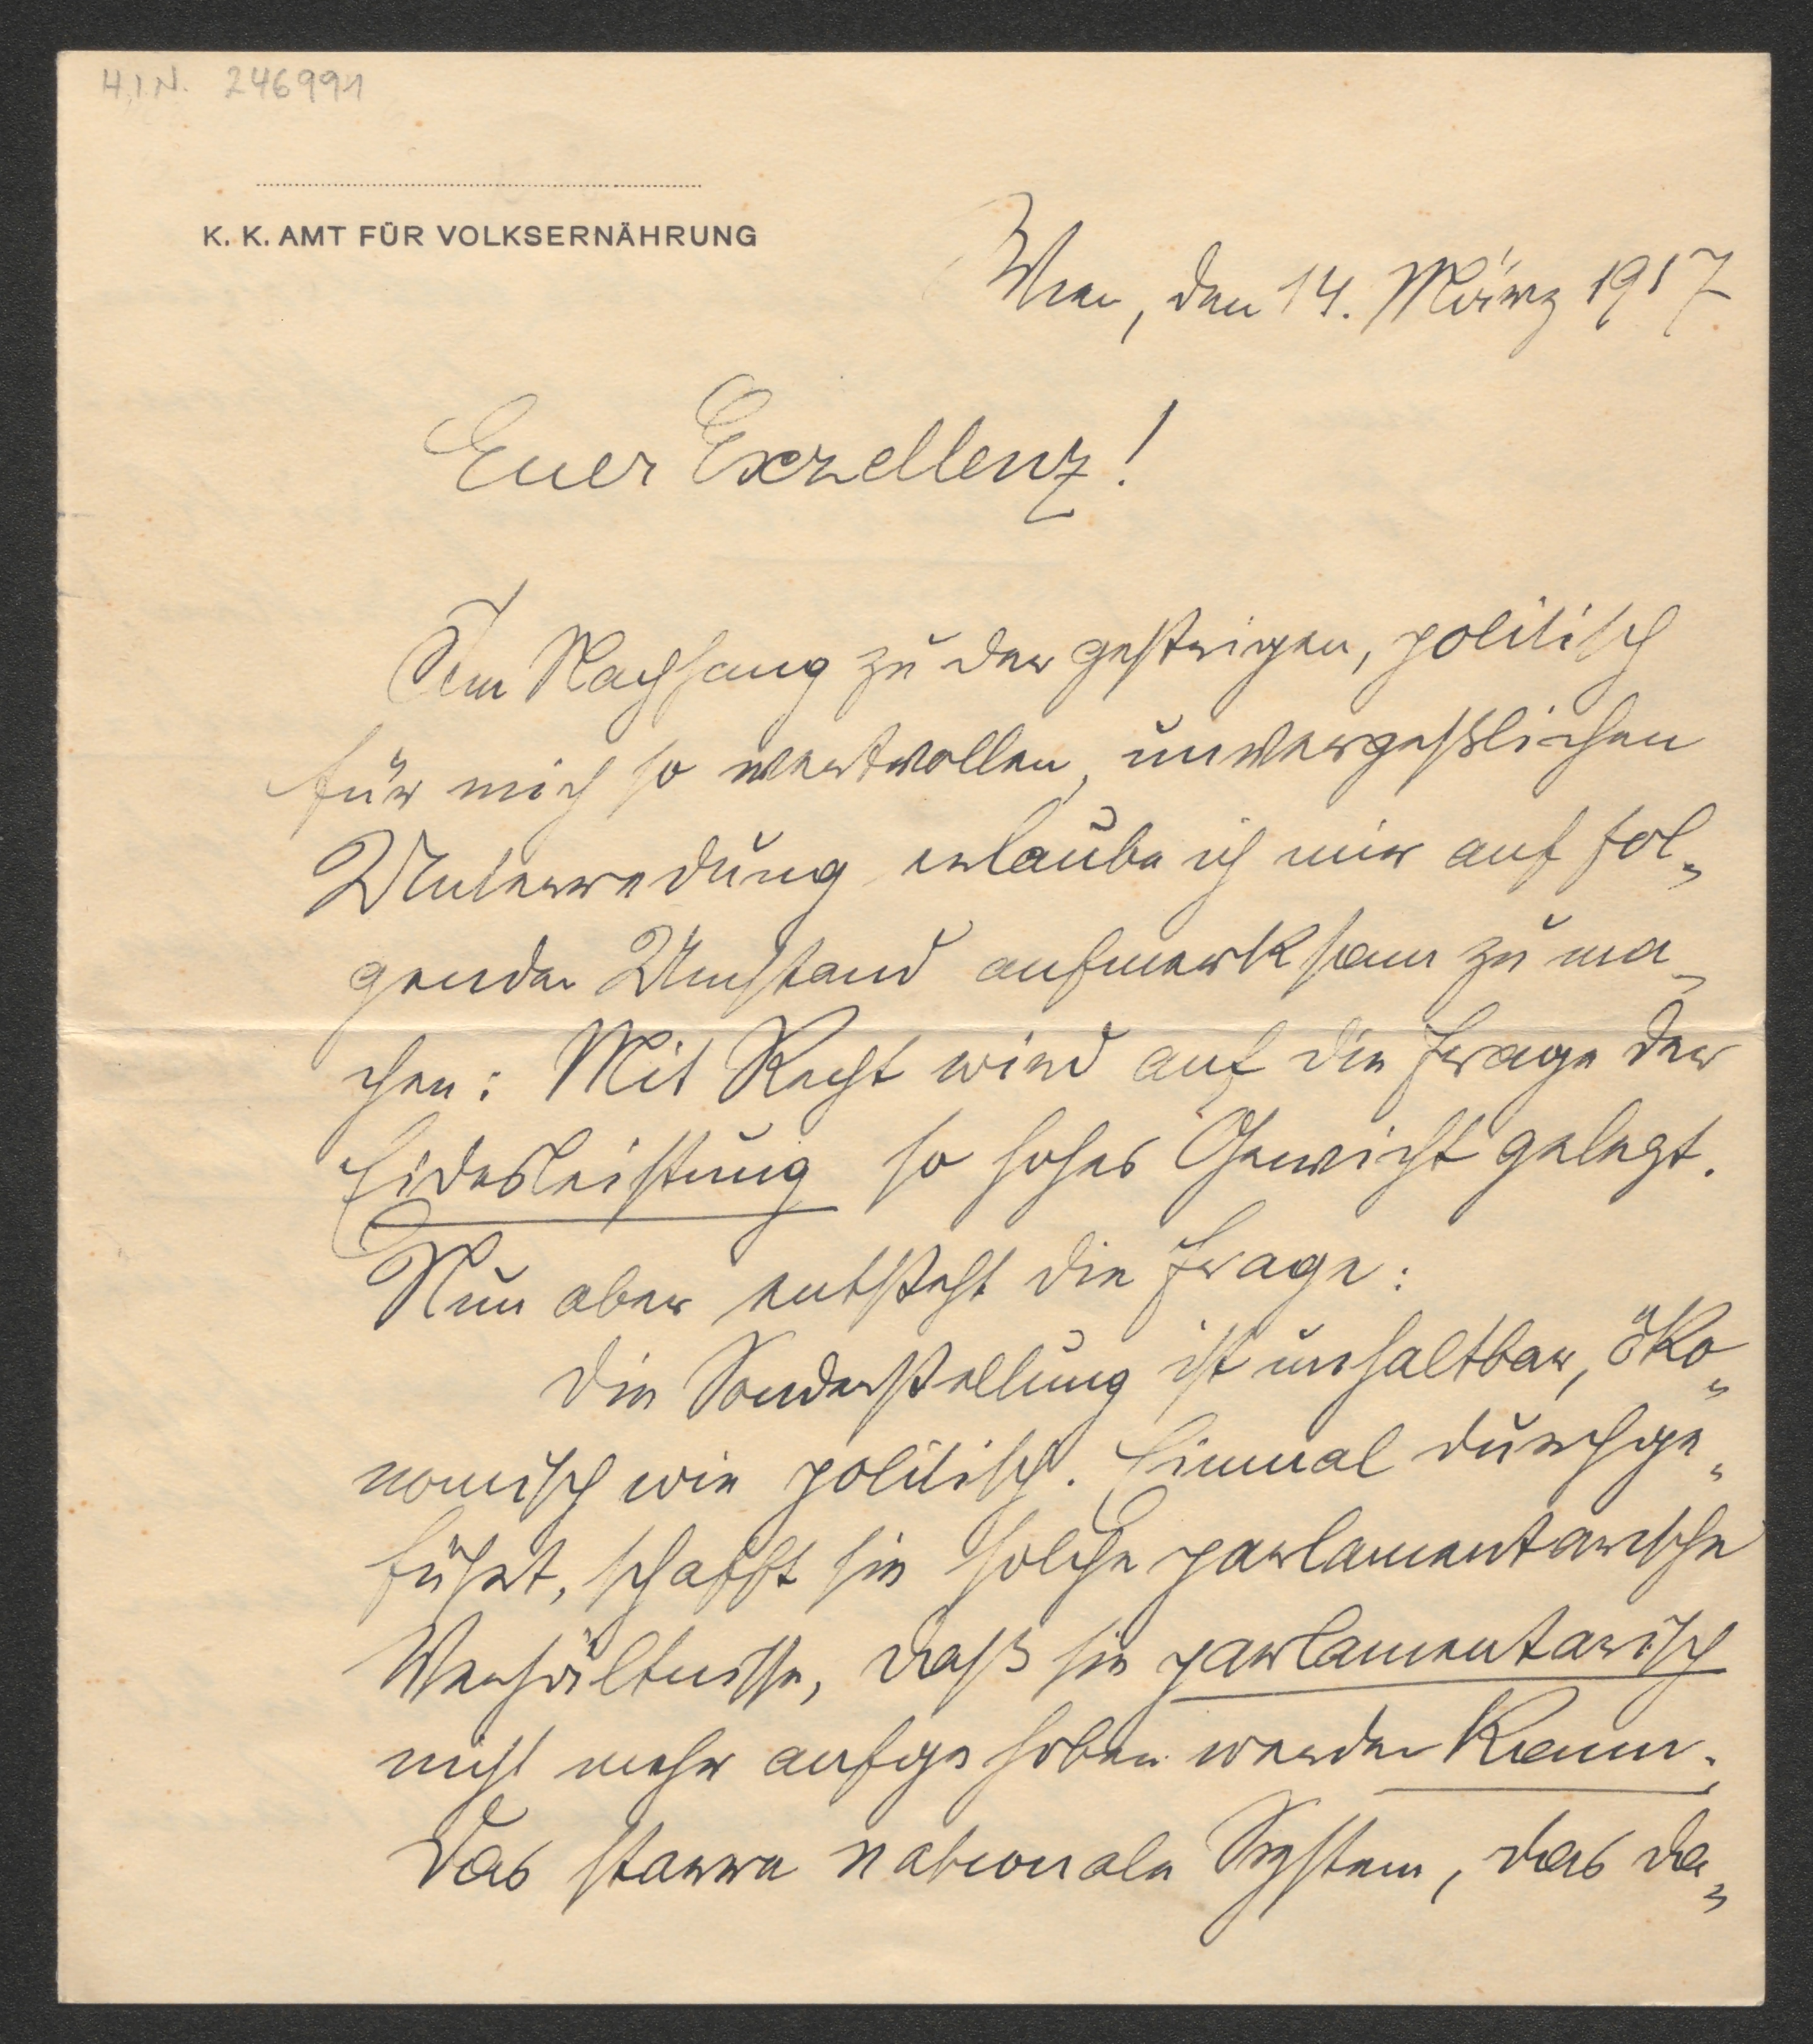 H.I.N. 246991
K. K. AMT FÜR VOLKSERNÄHRUNG
Wien, den 14. März 1917
Euer Exzellenz!
Im Nachhang zu der gestrigen, politisch
für mich so wertvollen, unvergeßlichen
Unterredung erlaube ich mir auf fol-
genden Umstand aufmerksam zu ma-
chen: Mit Recht wird auf die Frage der
Eidesleistung so hohes Gewicht gelegt.
Nun aber entsteht die Frage:
Die Sonderstellung ist unhaltbar, öko-
nomisch wie politisch. Einmal durchge-
führt, schafft sie solche parlamentarische
Verhältnisse, daß sie parlamentarisch
nicht mehr aufgehoben werden kann.
Das starre nationale System, das da-